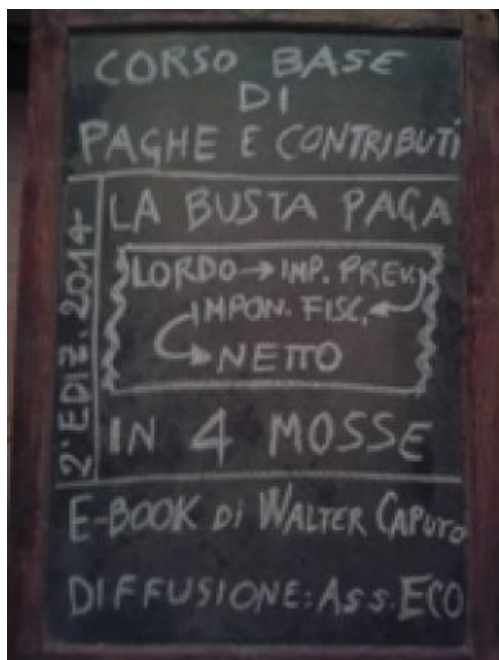 CORSO BASE
DI
PAGHE E CONTRIBUTI
2ª EDIZ. 2014
LA BUSTA PAGA
LORDO → IMP. PREV.
IMPON. FISC.
NETTO
IN 4 MOSSE
E-BOOK Di WALTER CAPUTO
DIFFUSIONE: ASS. ECO